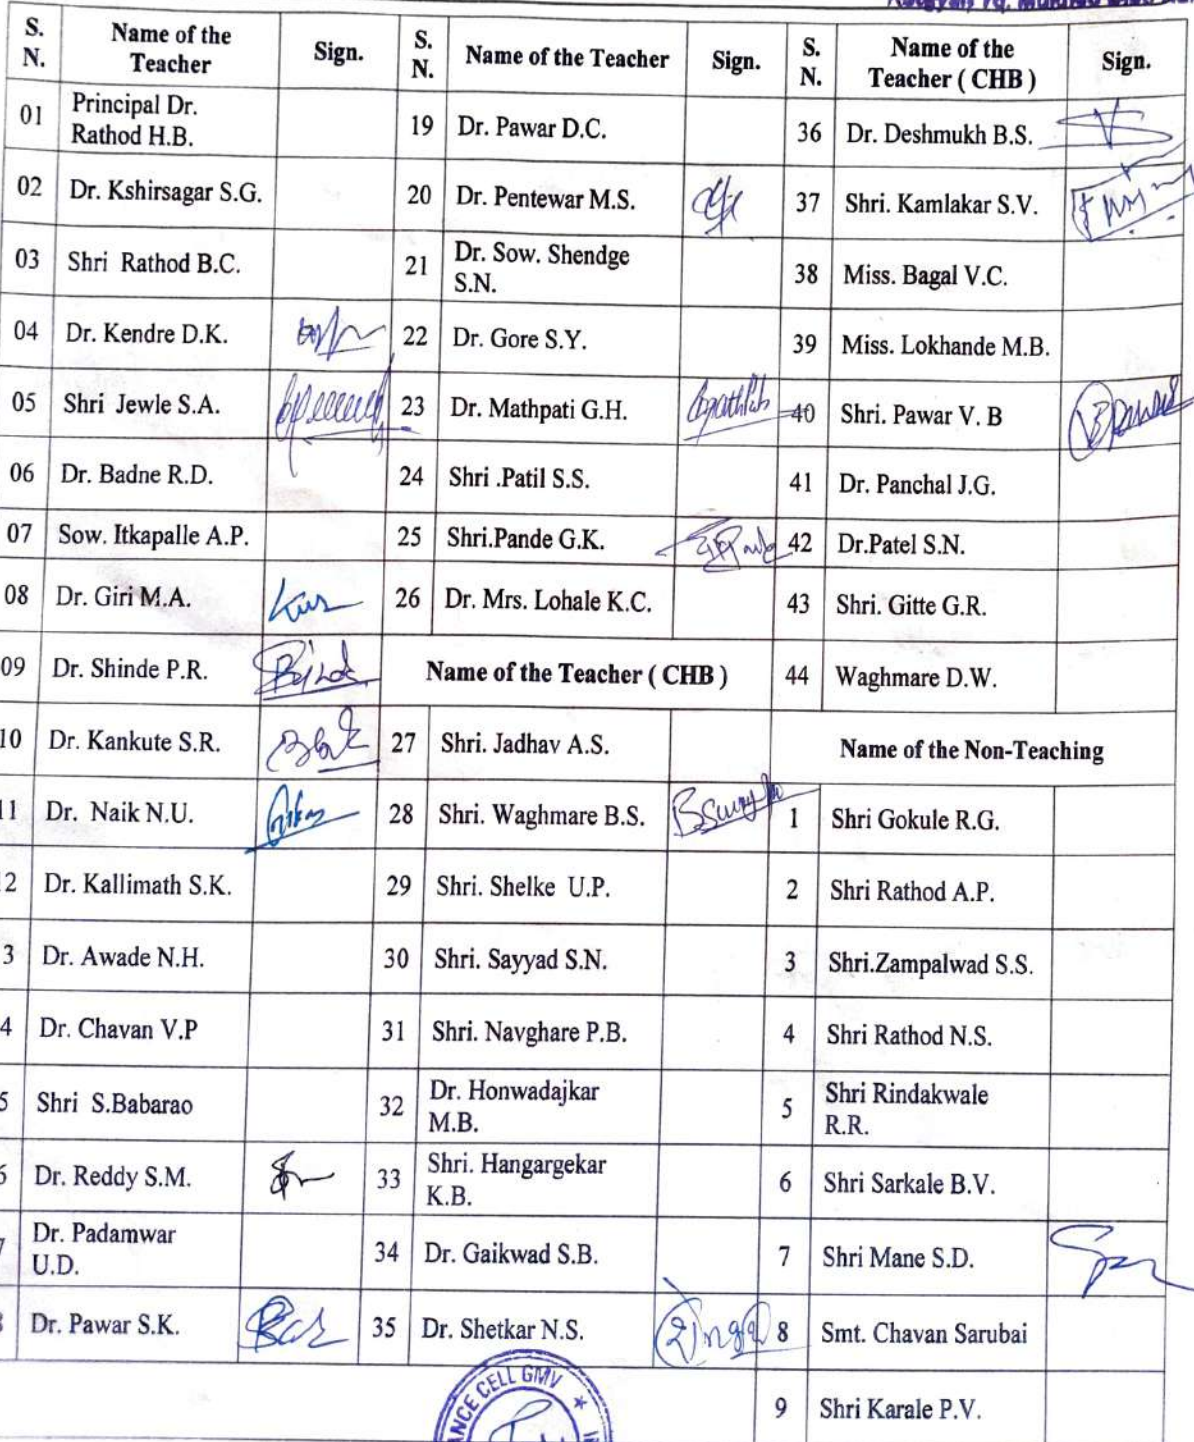 S. N. Name of the Teacher Sign. S. N. Name of the Teacher Sign. S. N. Name of the Teacher ( CHB ) Sign.
01 Principal Dr. Rathod H.B. 19 Dr. Pawar D.C. 36 Dr. Deshmukh B.S.
02 Dr. Kshirsagar S.G. 20 Dr. Pentewar M.S. 37 Shri. Kamlakar S.V.
03 Shri Rathod B.C. 21 Dr. Sow. Shendge S.N. 38 Miss. Bagal V.C.
04 Dr. Kendre D.K. 22 Dr. Gore S.Y. 39 Miss. Lokhande M.B.
05 Shri Jewle S.A. 23 Dr. Mathpati G.H. 40 Shri. Pawar V. B
06 Dr. Badne R.D. 24 Shri .Patil S.S. 41 Dr. Panchal J.G.
07 Sow. Itkapalle A.P. 25 Shri.Pande G.K. 42 Dr.Patel S.N.
08 Dr. Giri M.A. 26 Dr. Mrs. Lohale K.C. 43 Shri. Gitte G.R.
09 Dr. Shinde P.R. Name of the Teacher ( CHB ) 44 Waghmare D.W.
10 Dr. Kankute S.R. 27 Shri. Jadhav A.S. Name of the Non-Teaching
1 Dr. Naik N.U. 28 Shri. Waghmare B.S. 1 Shri Gokule R.G.
2 Dr. Kallimath S.K. 29 Shri. Shelke U.P. 2 Shri Rathod A.P.
3 Dr. Awade N.H. 30 Shri. Sayyad S.N. 3 Shri.Zampalwad S.S.
4 Dr. Chavan V.P 31 Shri. Navghare P.B. 4 Shri Rathod N.S.
5 Shri S.Babarao 32 Dr. Honwadajkar M.B. 5 Shri Rindakwale R.R.
6 Dr. Reddy S.M. 33 Shri. Hangargekar K.B. 6 Shri Sarkale B.V.
7 Dr. Padamwar U.D. 34 Dr. Gaikwad S.B. 7 Shri Mane S.D.
8 Dr. Pawar S.K. 35 Dr. Shetkar N.S. 8 Smt. Chavan Sarubai
9 Shri Karale P.V.
CELL GMV